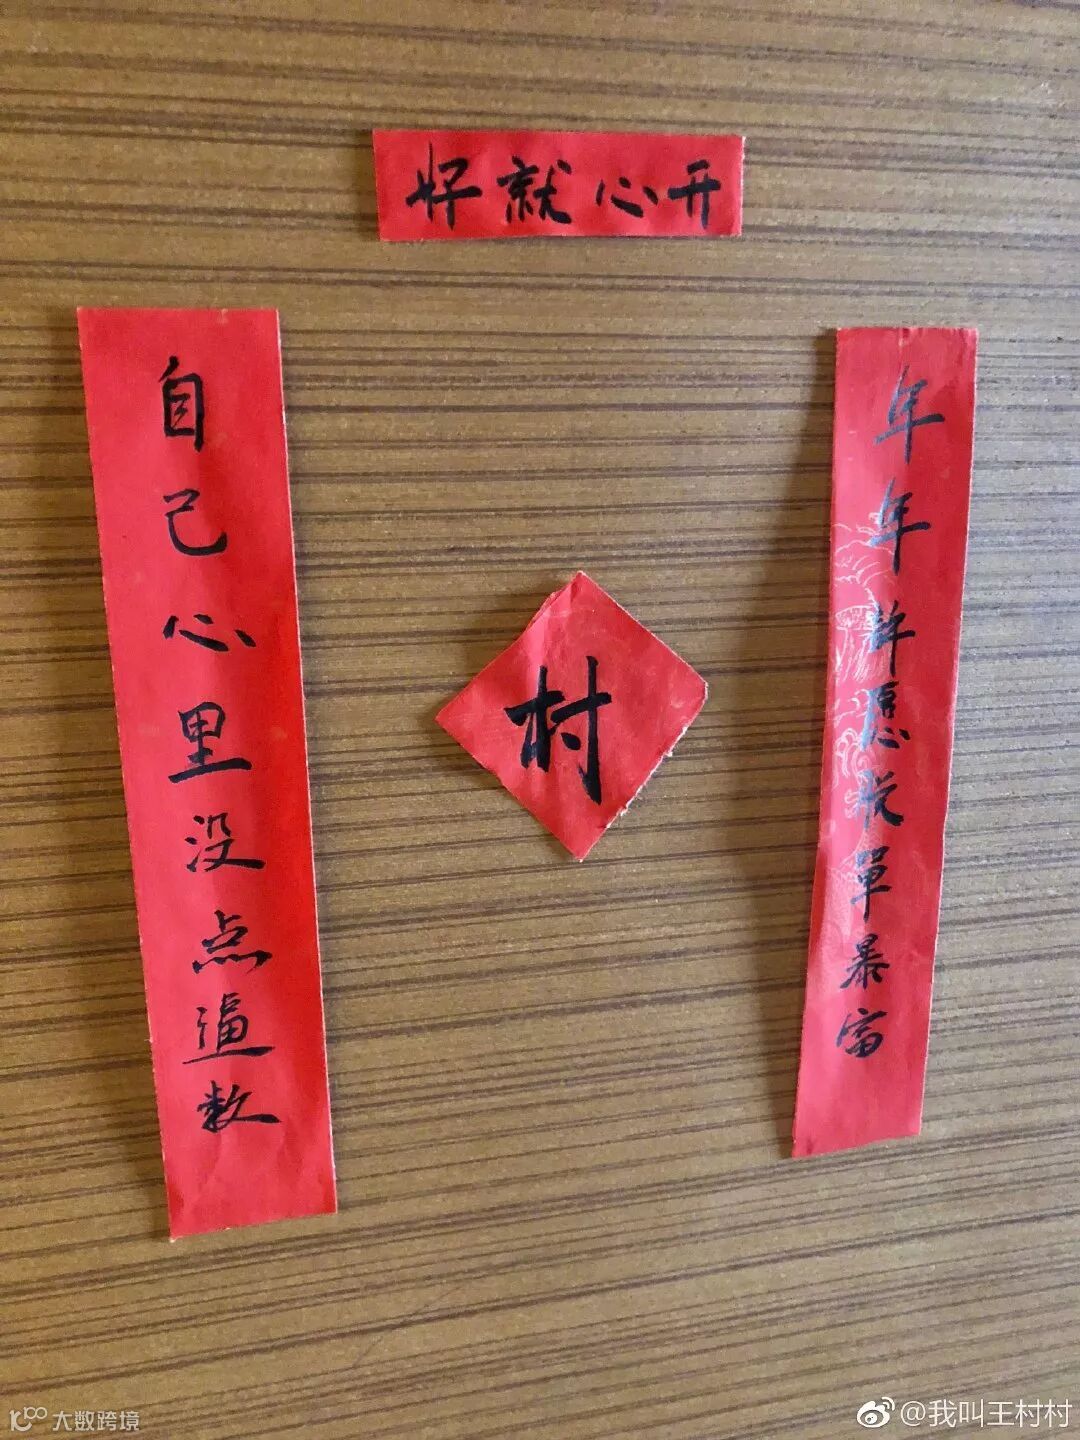 好就心开
年年許愿我單暴富
自己心里没点逼数
村
大数跨境
@我叫王村村